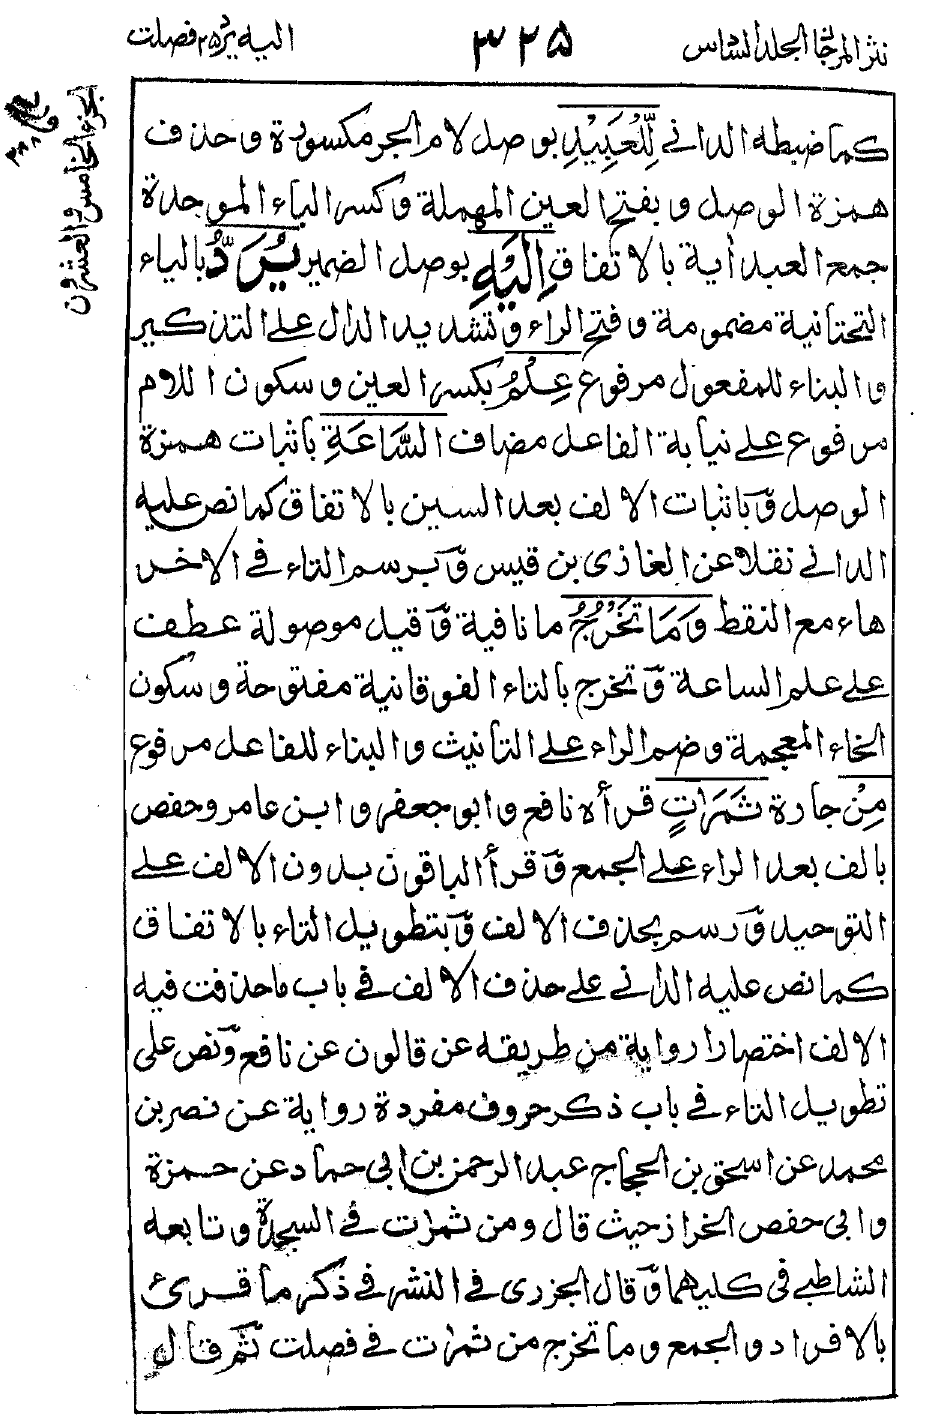 نثر المرجان المجلد السادس
٣٢٥
اليه يرد ٢٥ فصلت
الجزء الخامس والعشرون
كما ضبطه الداني لِّلْعَبِيْدِ بوصل لام الجر مكسورة وحذف
همزة الوصل وبفتح العين المهملة وكسر الباء الموحدة
جمع العبد أية بالاتفاق اِلَيْهِ بوصل الضمير يُرَدُّ بالياء
التحتانية مضمومة وفتح الراء وتشديد الدال على التذكير
والبناء للمفعول مرفوع عِلْمُ بكسر العين وسكون اللام
مرفوع على نيابة الفاعل مضاف السَّاعَةِ بأثبات همزة
الوصل وبأثبات الالف بعد السين بالاتفاق كما نص عليه
الداني نقلا عن الغازى بن قيس وبرسم التاء في الاخر
هاء مع النقط وَمَا تَخْرُجُ ما نافية وقيل موصولة عطف
على علم الساعة وتخرج بالتاء الفوقانية مفتوحة وسكون
الخاء المعجمة وضم الراء على التأنيث والبناء للفاعل مرفوع
مِنْ جارة ثَمَرَاتٍ قرأه نافع وابو جعفر وابن عامر وحفص
بالف بعد الراء على الجمع وقرأ الباقون بدون الالف على
التوحيد ورسم بحذف الالف وبتطويل التاء بالاتفاق
كما نص عليه الداني على حذف الالف في باب ما حذفت فيه
الالف اختصارا رواية من طريقه عن قالون عن نافع ونص على
تطويل التاء في باب ذكر حروف مفردة رواية عن نصر بن
محمد عن اسحق بن الحجاج عبد الرحمن بن ابي حماد عن حمزة
وابي حفص الخزاز حيث قال ومن ثمرات في السجدة وتابعه
الشاطبي في كليهما وقال الجزرى في النشر في ذكر ما قرئ
بالافراد والجمع وما تخرج من ثمرات في فصلت ثم قال